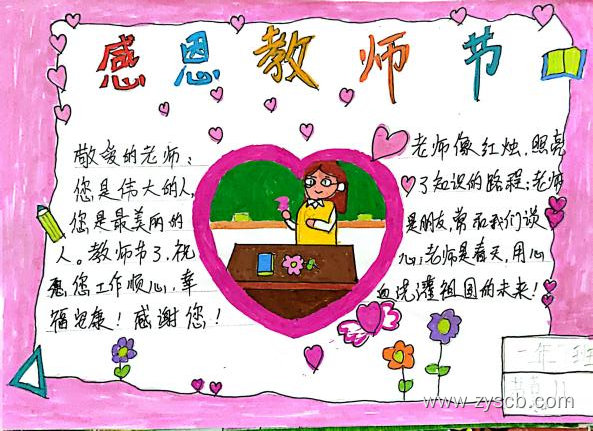 感恩教师节
敬爱的老师：
您是伟大的人,
您是最美丽的
人。教师节了,祝
您工作顺心,幸
福安康！感谢您！
老师像红烛,照亮
了知识的路程;老师
是朋友,常和我们谈
心;老师是春天,用心
血浇灌祖国的未来！
一年 班
www.zyscb.com